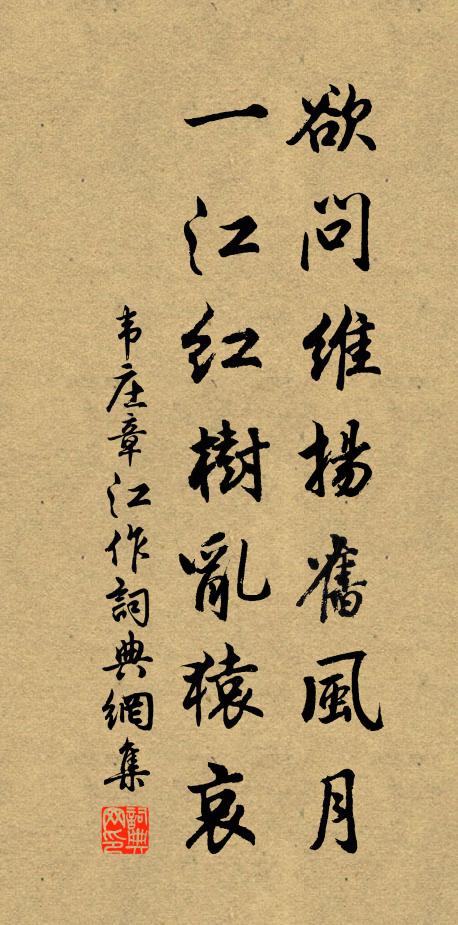 欲問維揚舊風月
一江紅樹亂猿哀
韦庄章江作詞典網集
詞典
网印